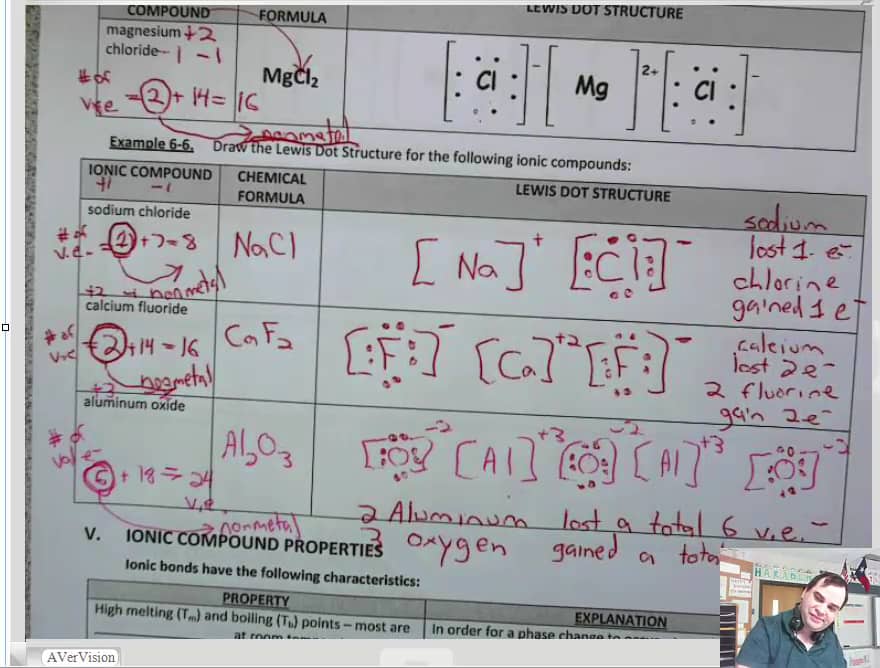 COMPOUND FORMULA LEWIS DOT STRUCTURE
magnesium +2
chloride -1 -1
MgCl₂
# of
v.e = 2 + 14 = 16
nonmetal
[ Cl ]⁻ [ Mg ]²⁺ [ Cl ]⁻
Example 6-6. Draw the Lewis Dot Structure for the following ionic compounds:
IONIC COMPOUND CHEMICAL FORMULA LEWIS DOT STRUCTURE
+1 -1
sodium chloride
# of
v.e. = 1 + 7 = 8
nonmetal
NaCl
[ Na ]⁺ [ Cl ]⁻
sodium
lost 1 e⁻
chlorine
gained 1 e⁻
+2
calcium fluoride
# of
v.e = 2 + 14 = 16
nonmetal
CaF₂
[ F ]⁻ [ Ca ]⁺² [ F ]⁻
calcium
lost 2e⁻
2 fluorine
gain 2e⁻
+3
aluminum oxide
# of
val e⁻
6 + 18 = 24
v.e
nonmetal
Al₂O₃
[ O ]⁻² [ Al ]⁺³ [ O ]⁻² [ Al ]⁺³ [ O ]⁻²
2 Aluminum lost a total 6 v.e.⁻
3 oxygen gained a tota
V. IONIC COMPOUND PROPERTIES
Ionic bonds have the following characteristics:
PROPERTY EXPLANATION
High melting (Tₘ) and boiling (T_b) points – most are
at room
In order for a phase change to
AVerVision